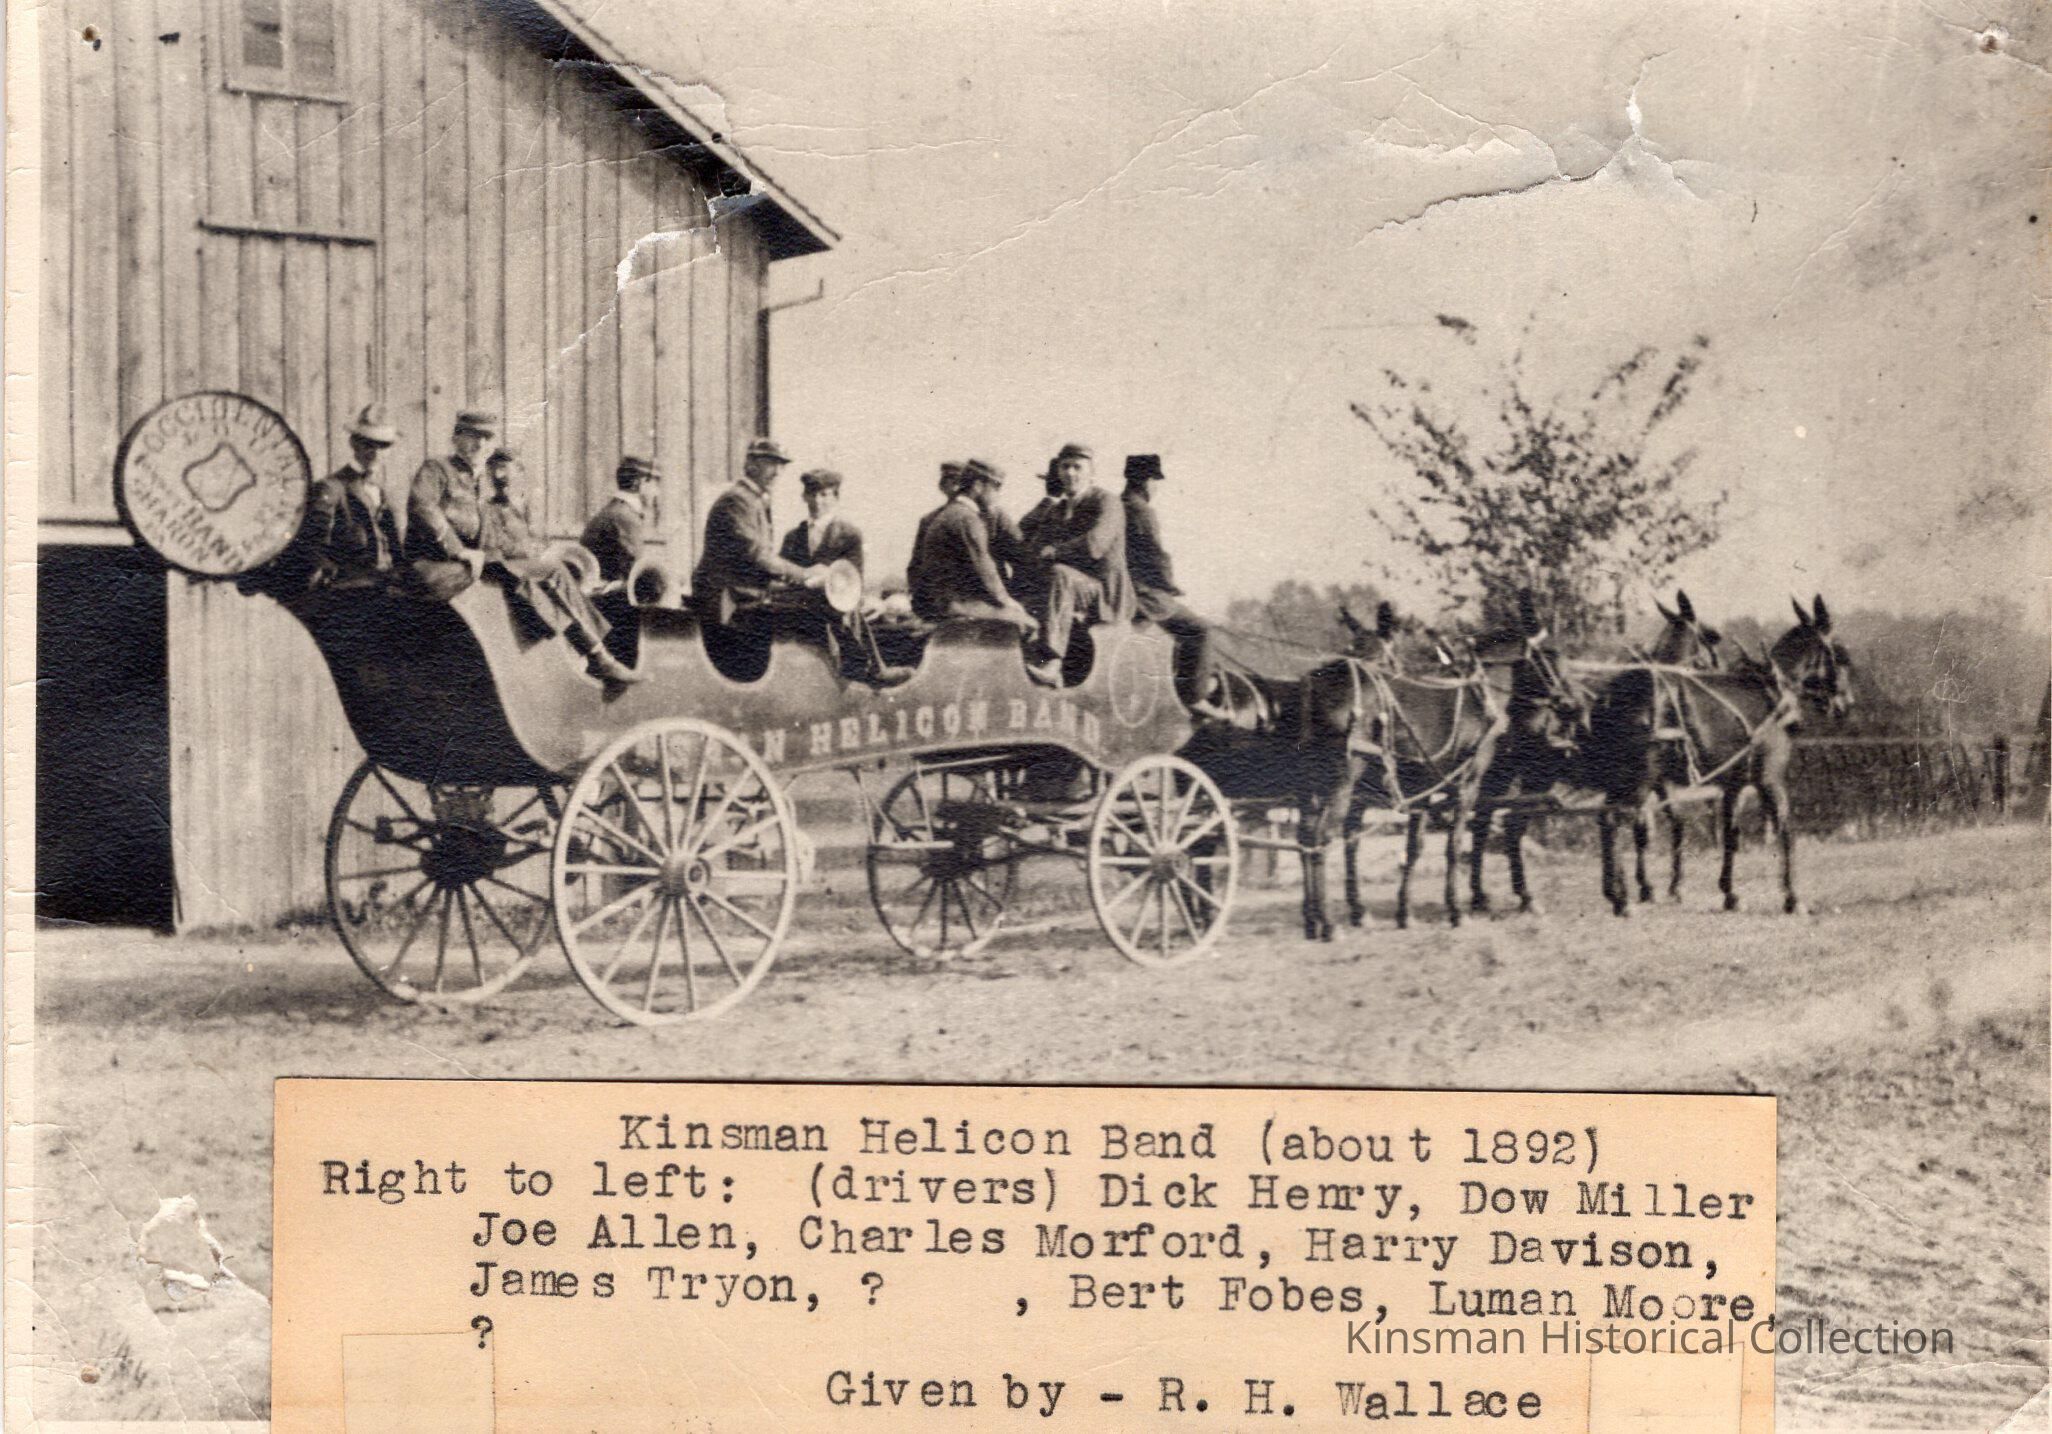 OCCIDENTAL
BAND
SHARON
HELICON BAND
Kinsman Helicon Band (about 1892)
Right to left: (drivers) Dick Henry, Dow Miller
Joe Allen, Charles Morford, Harry Davison,
James Tryon, ? , Bert Fobes, Luman Moore,
?
Kinsman Historical Collection
Given by - R. H. Wallace